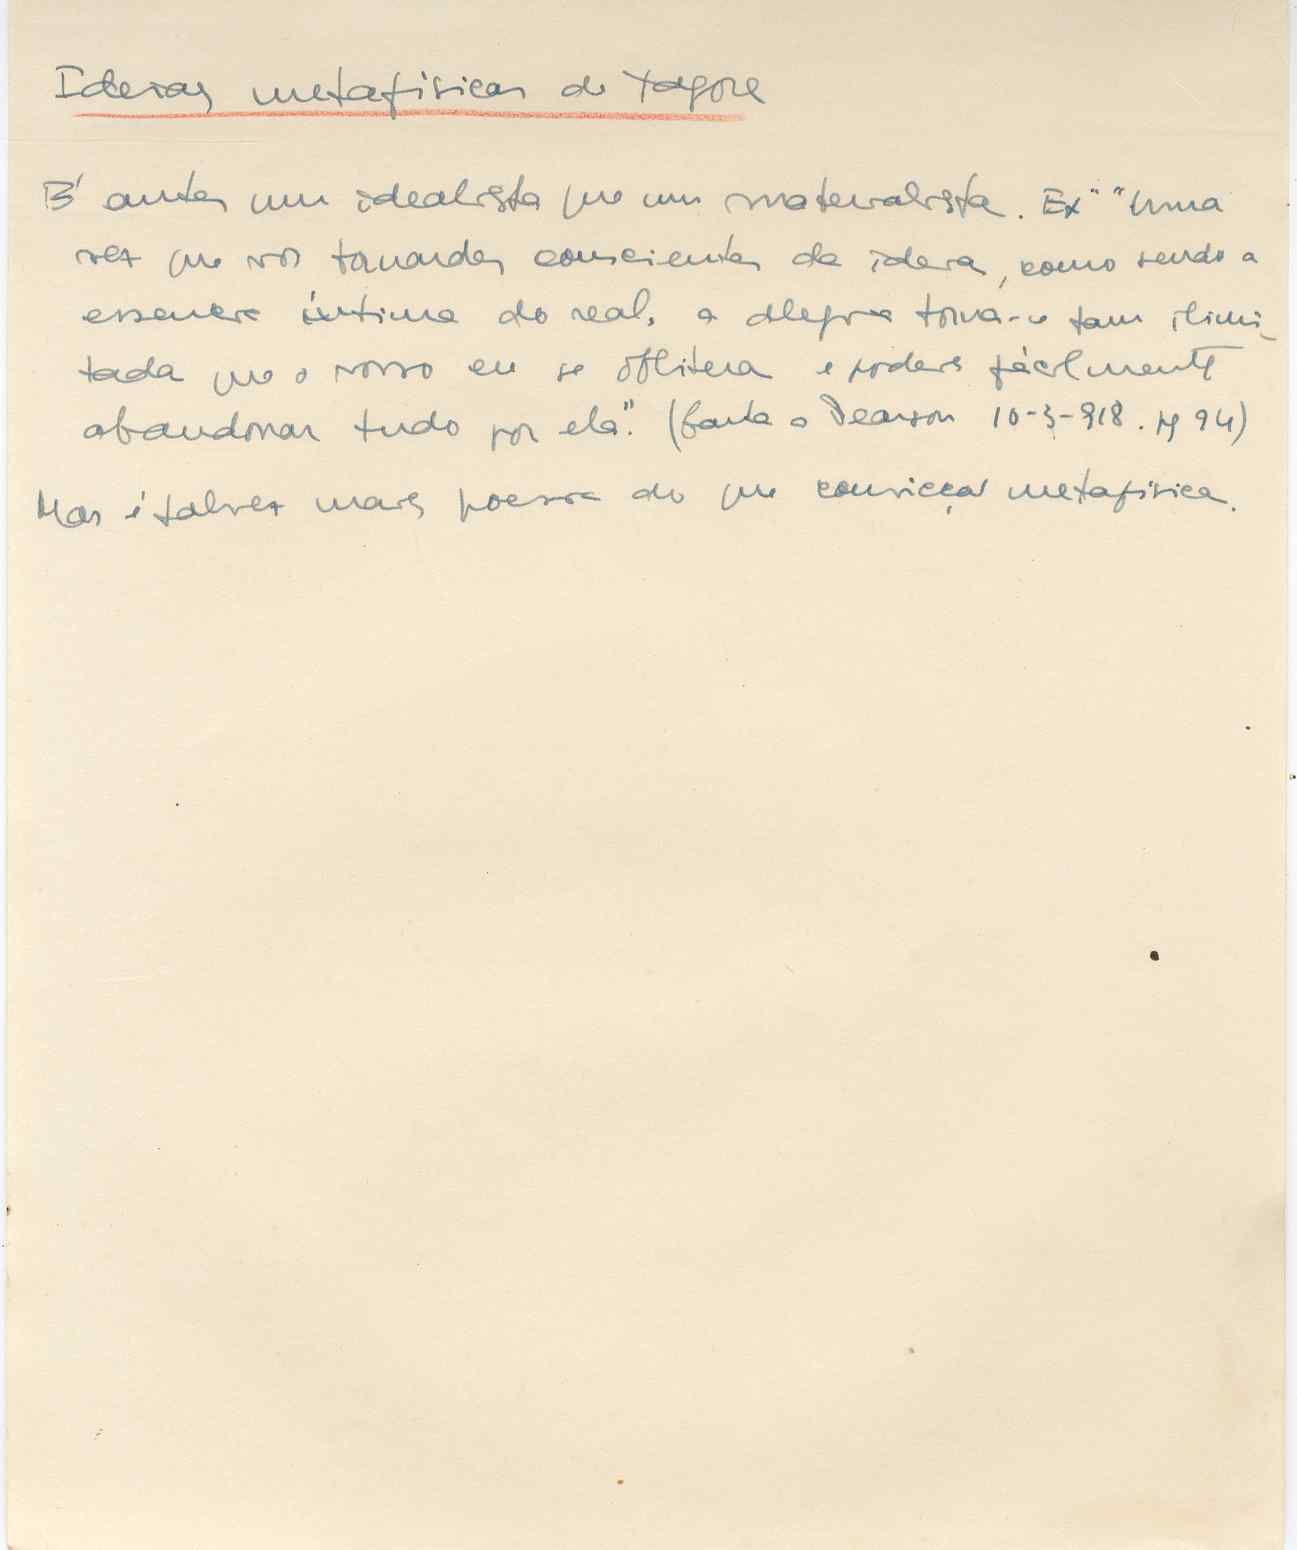 Ideias metafísicas de Tagore
É antes um idealista que um materialista. Exº "Uma
vez que vos tornardes conscientes da ideia, como sendo a
essencia íntima do real, a alegria torna-se tam ilimi-
tada que o vosso eu se oblitera e podeis fàcilmente
abandonar tudo por ela". (Carta a Pearson 10-3-918. pg 94)
Mas é talvez mais poesia do que convicção metafísica.